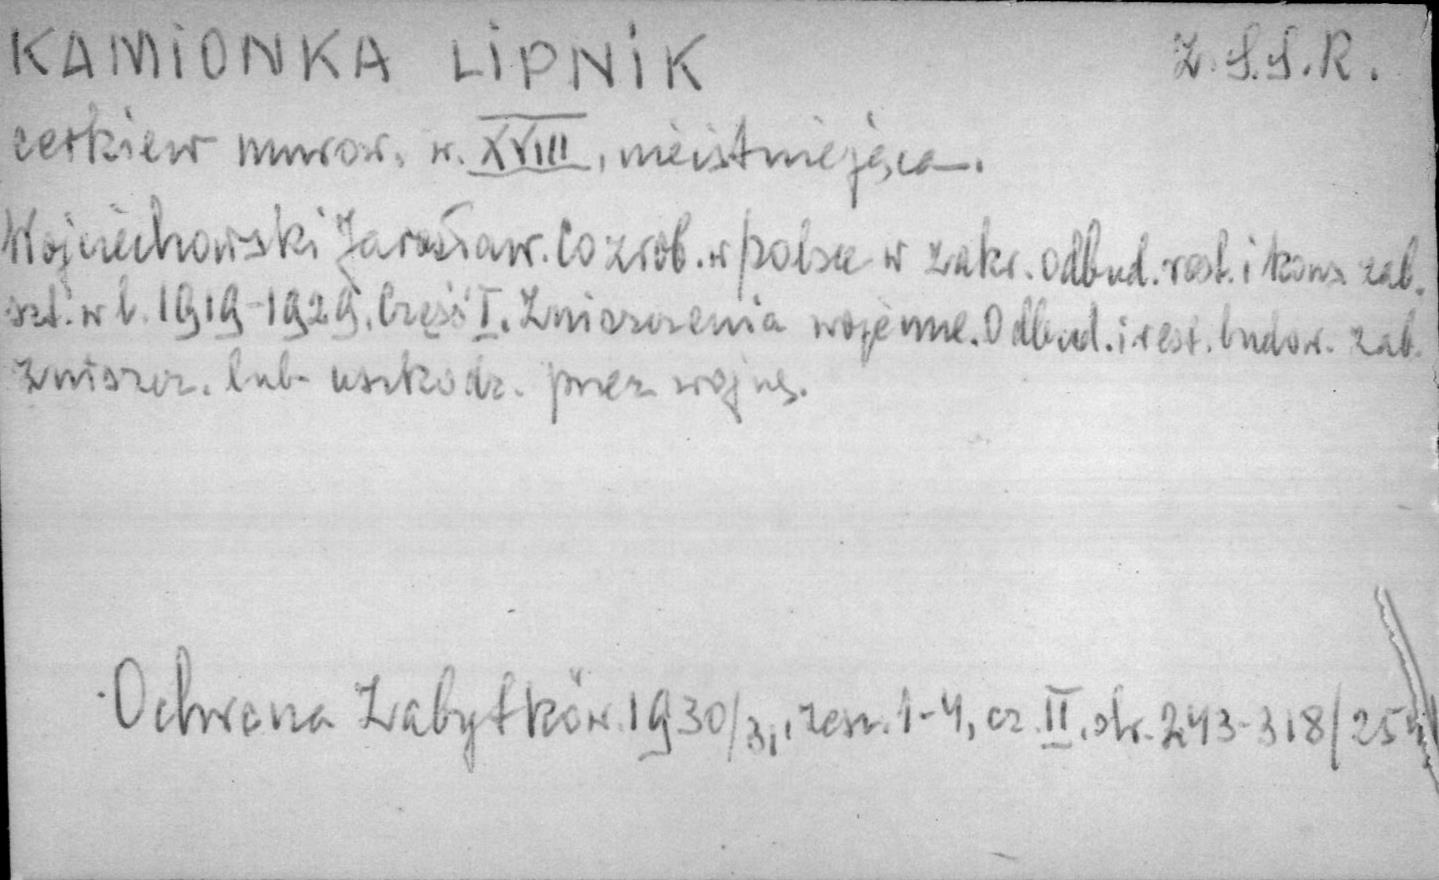 KAMIONKA LIPNIK Z.S.S.R.
cerkiew murow. w. XVIII, nieistniejąca.
Wojciechowski Jarosław. Co zrob. w Polsce w zakr. odbud. rest. i kons. zab.
szt. w l. 1919-1929. Część I. Zniszczenia wojenne. Odbud. i rest. budow. zab.
zniszcz. lub uszkodz. przez wojnę.
Ochrona Zabytków. 1930/31, zesz. 1-4, cz. II. str. 243-318/25